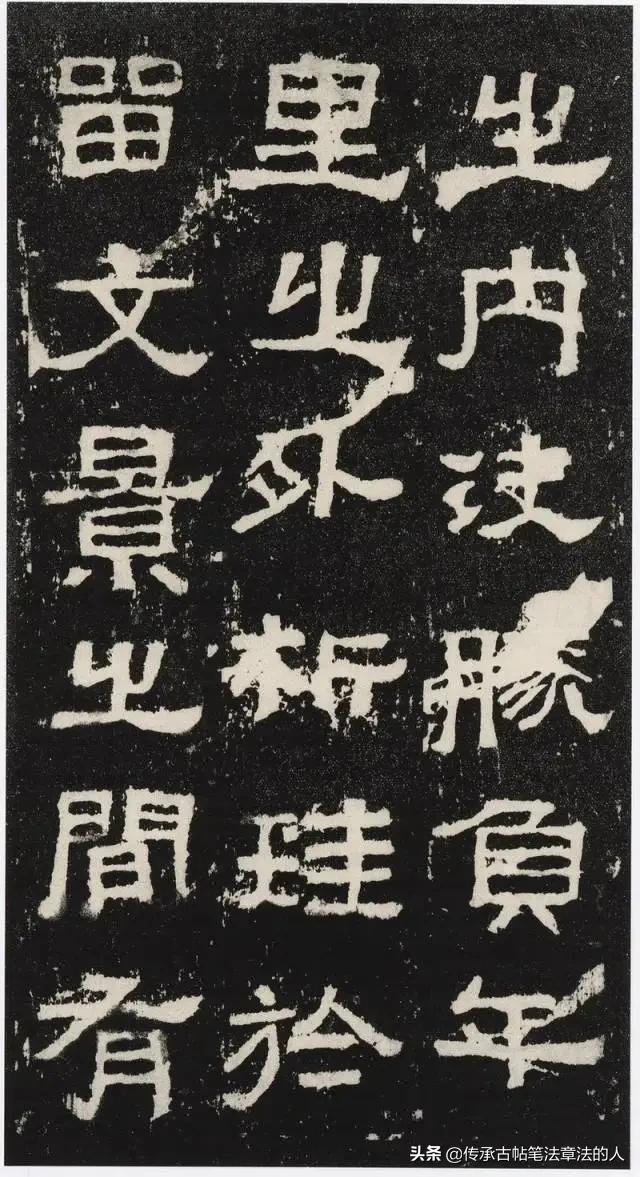 之内決勝負千
里之外析珪於
留文景之間有
头条 @传承古帖笔法章法的人